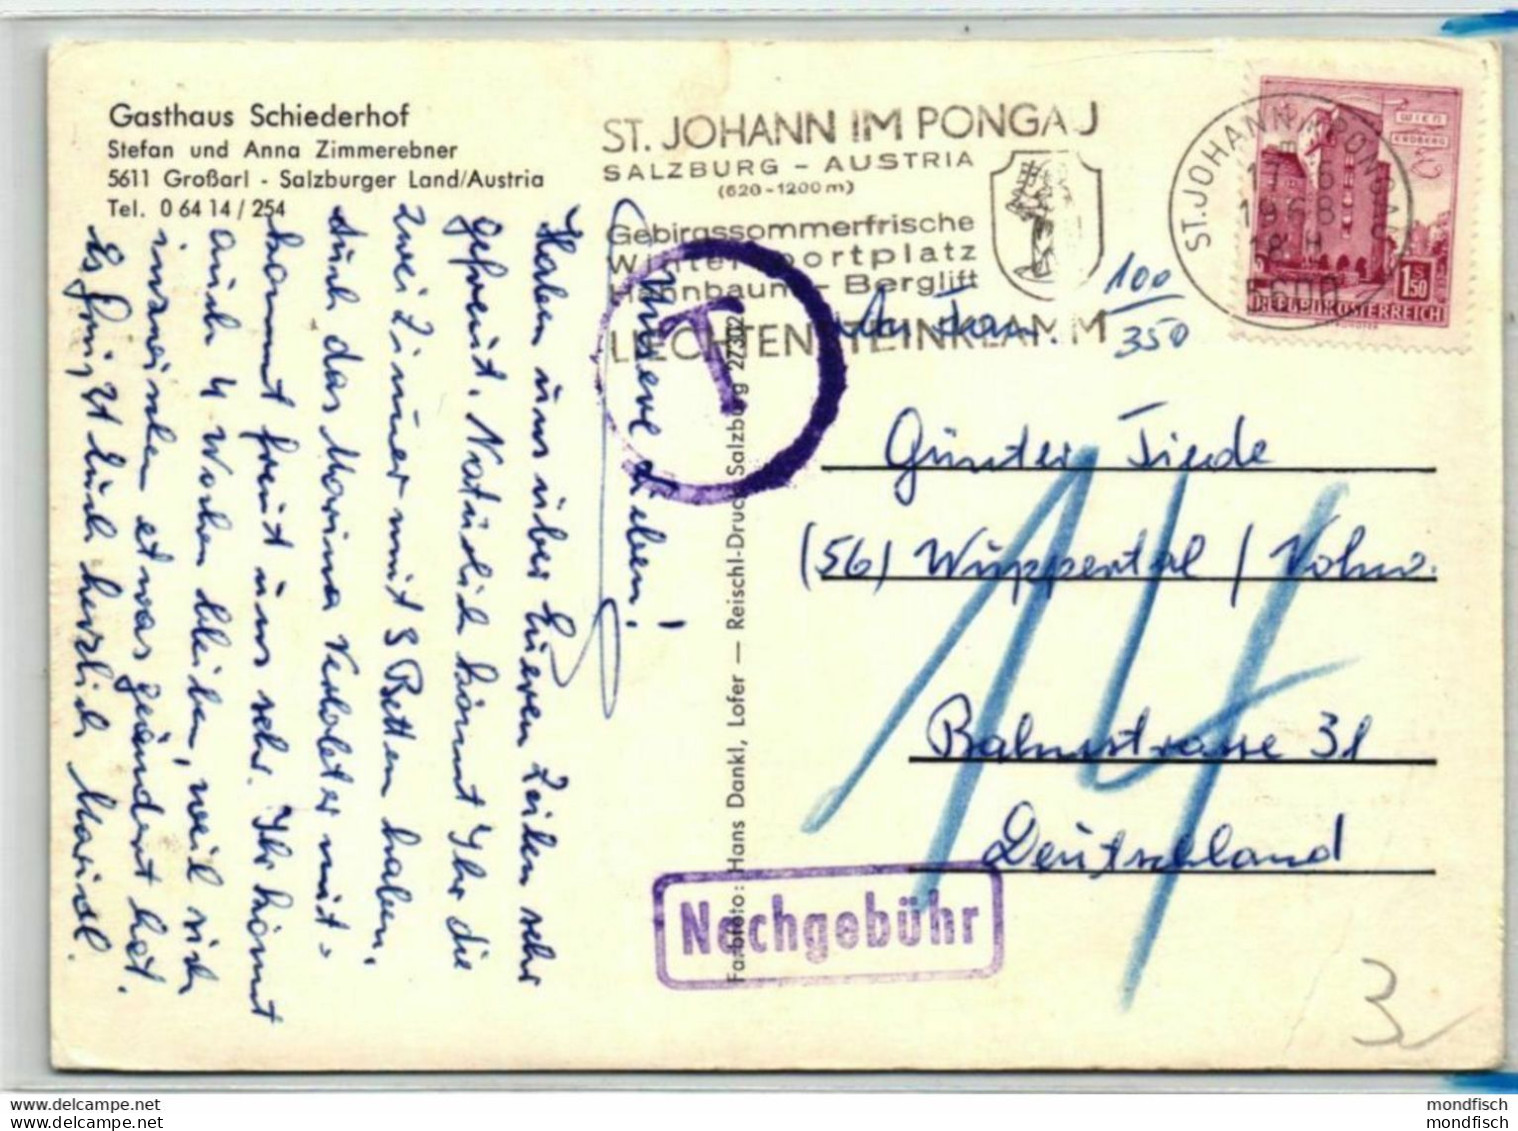 Gasthaus Schiederhof
Stefan und Anna Zimmerebner
5611 Großarl - Salzburger Land/Austria
Tel. 0 64 14 / 254
Unsere Lieben!
Haben uns über Eueren Zeilen sehr
gefreut. Natürlich könnt Ihr die
zwei Zimmer mit 3 Betten haben.
Auch das Marina Verlobter mit-
kommt freut uns sehr. Ihr könnt
auch 4 Wochen bleiben, weil sich
inzwischen etwas geändert hat.
Es grüßt Euch herzlich Mariedl.
ST. JOHANN IM PONGAU
SALZBURG - AUSTRIA
(620-1200 m)
Gebirgssommerfrische
Wintersportplatz
Hahnbaum - Berglift
LIECHTENSTEINKLAMM
T
ST. JOHANN IM PONGAU
17. 6
1968
18 H
5600
WIEN
ERDBERG
1.50
S
REPUBLIK ÖSTERREICH
An Fam.
100
350
Günter Tiede
(56) Wuppertal / Vohw.
Bahnstrasse 31
Deutschland
14
Nachgebühr
3
Farbfoto: Hans Dankl, Lofer — Reischl-Druck Salzburg 27302
mondfisch
mondfisch
mondfisch
mondfisch